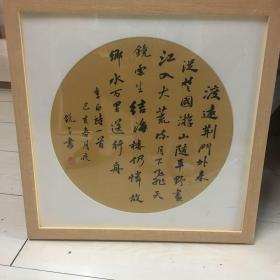 渡遠荆門外来
從楚國游山隨平野盡
江入大荒流月下飛天
鏡雲生結海樓仍憐故
鄉水万里送行舟
李白詩一首
己亥春月
書